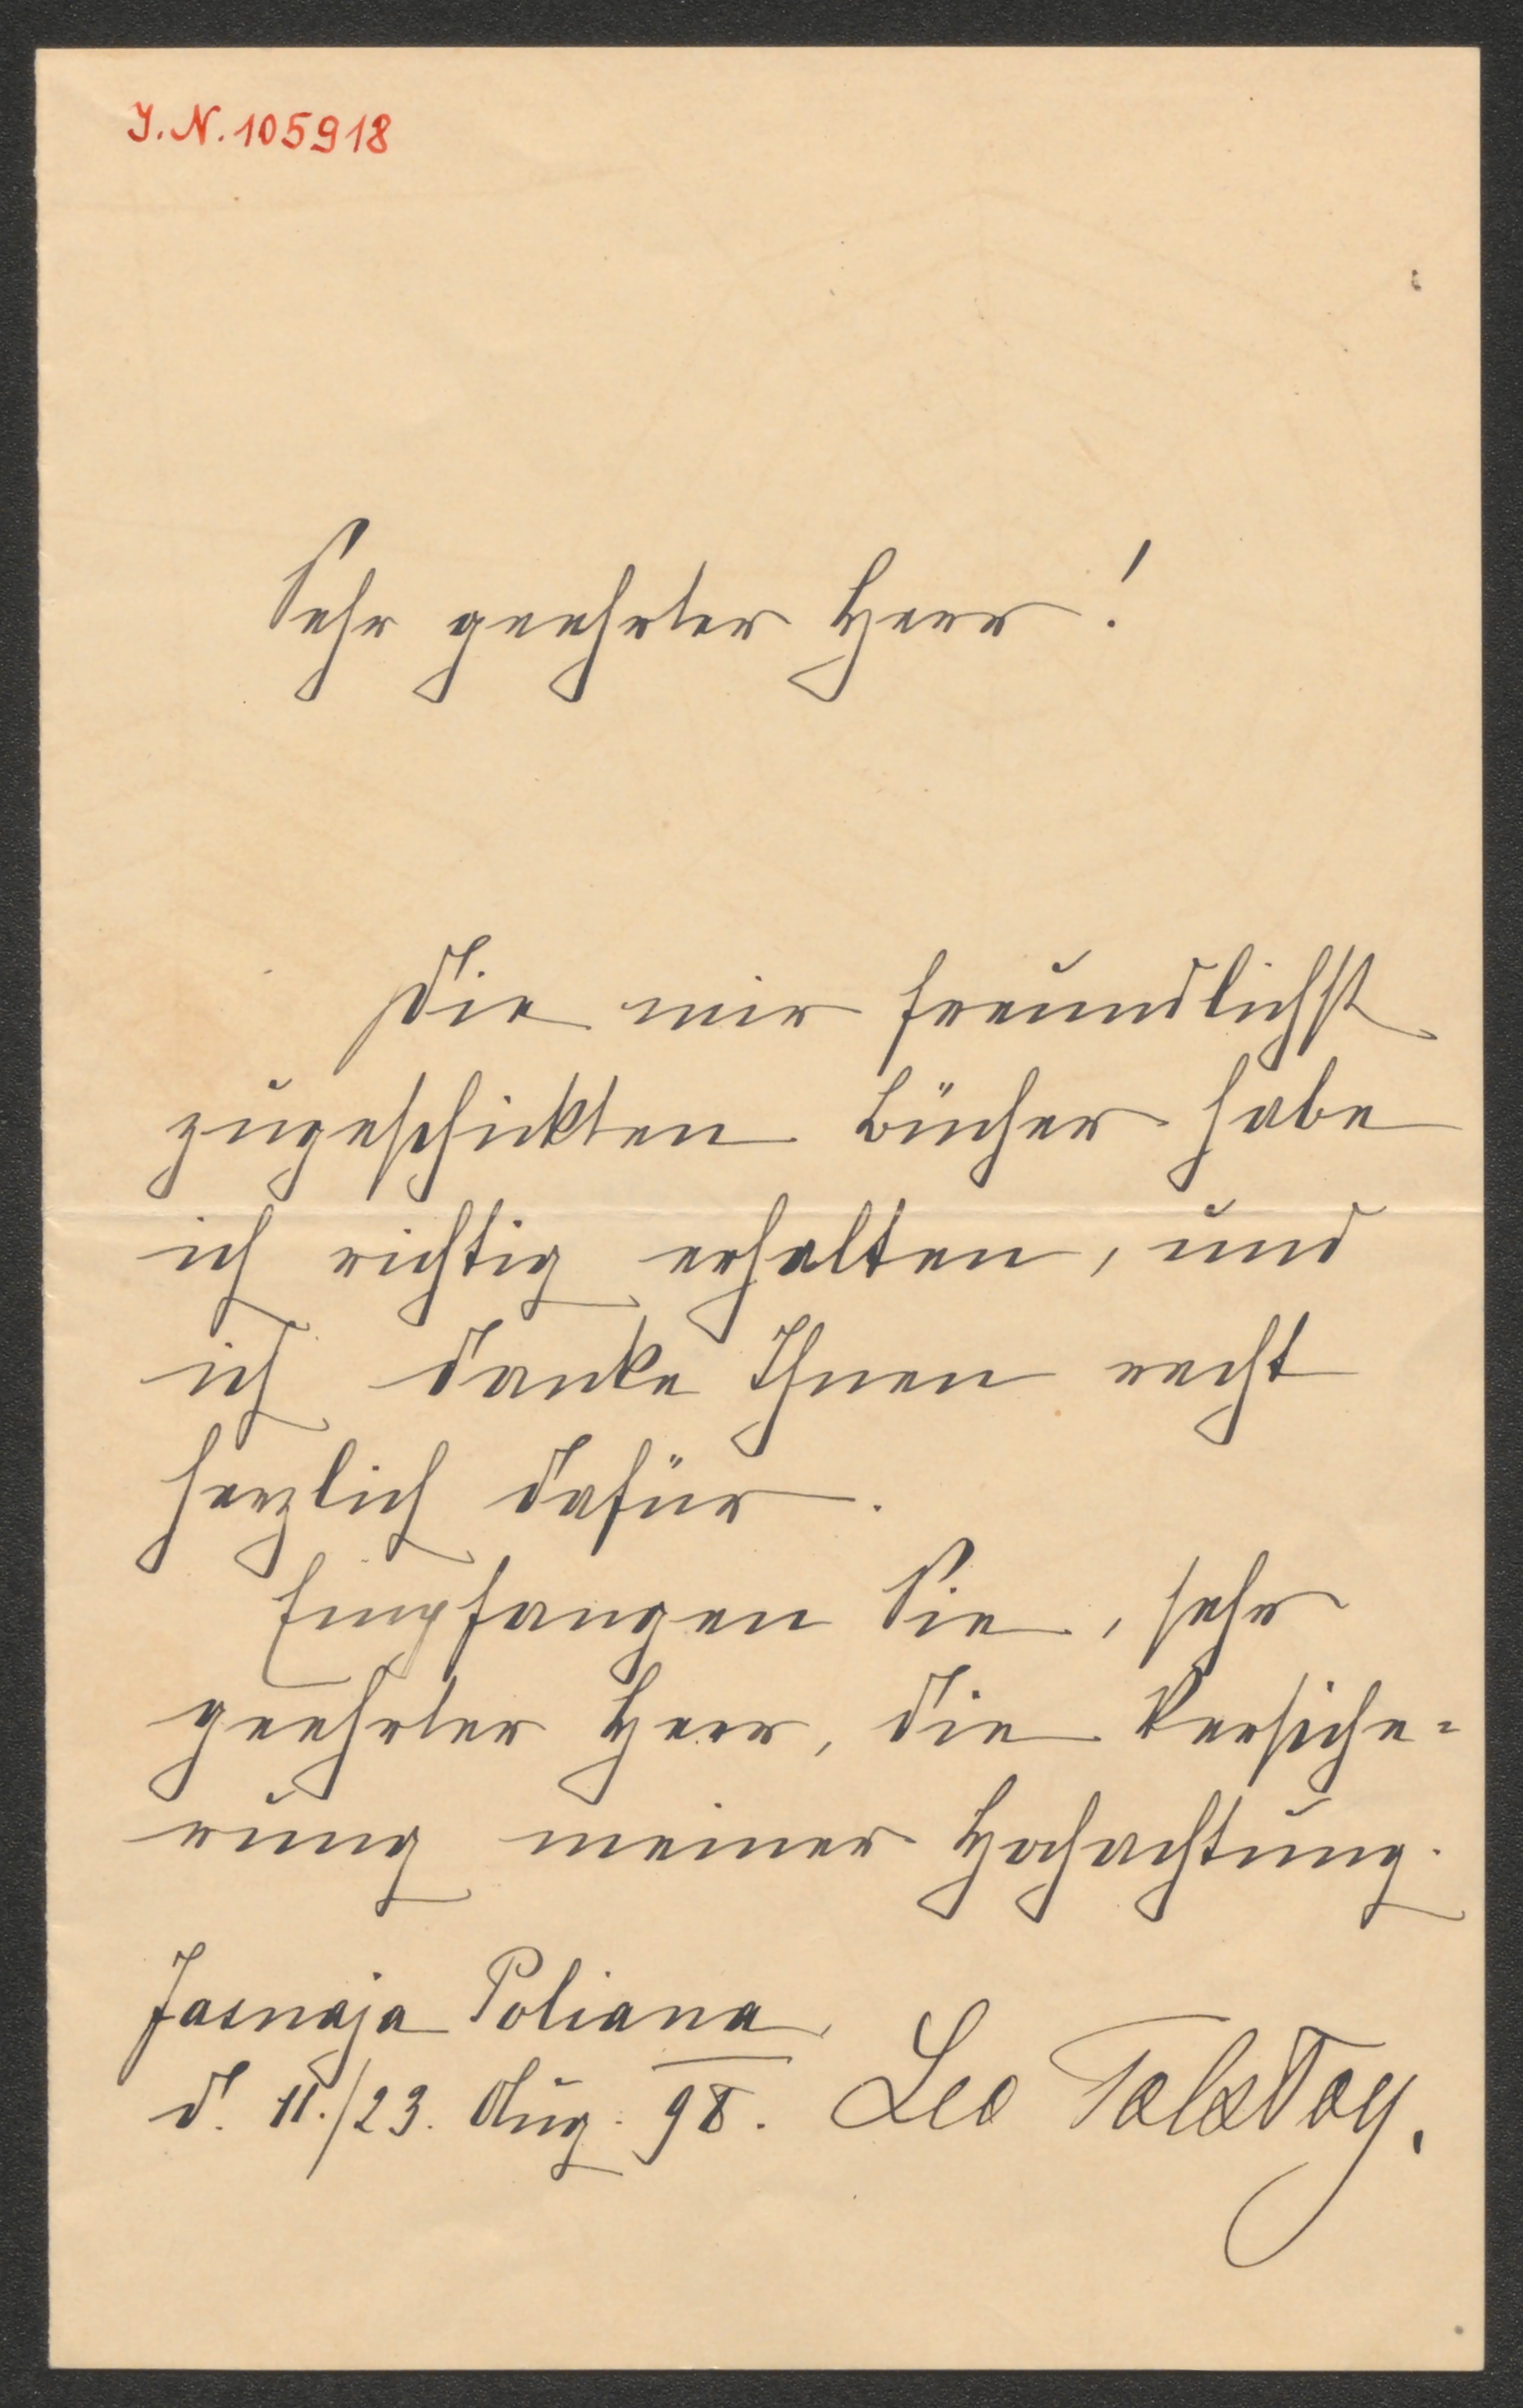 J.N. 105918
Sehr geehrter Herr!
Die mir freundlichst
zugeschickten Bücher habe
ich richtig erhalten, und
ich danke Ihnen recht
herzlich dafür.
Empfangen Sie, sehr
geehrter Herr, die Versiche=
rung meiner Hochachtung.
Jasnaja Poliana,
d. 11./23. Aug. 98. Leo Tolstoy.